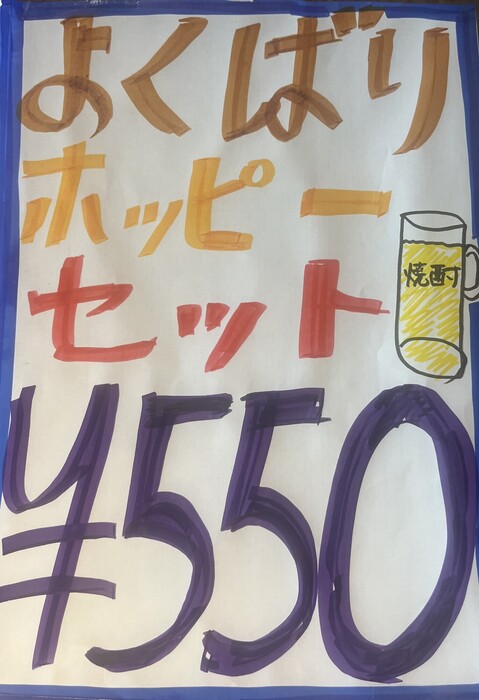 よくばり
ホッピー
セット
焼酎
¥550